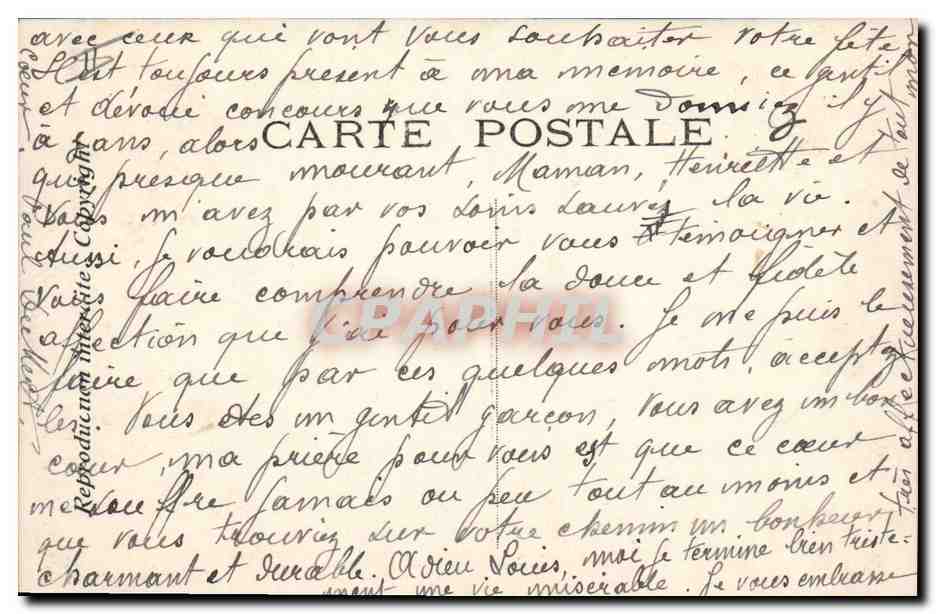 avec ceux qui vont vous souhaiter votre fête
Il est toujours present à ma memoire, ce gentil
et dévoué concours que vous me donniez il y
à ans, alors
CARTE POSTALE
que presque mourant, Maman, Henriette et
vous m'avez par vos soins sauvé la vie.
Aussi, je voudrais pouvoir vous temoigner et
vous faire comprendre la douce et fidèle
affection que j'ai pour vous. Je ne puis le
faire que par ces quelques mots, acceptez
les. Vous êtes un gentil garçon, vous avez un bon
cœur, ma prière pour vous est que ce cœur
ne souffre jamais ou peu tout au moins et
que vous trouviez sur votre chemin un bonheur
charmant et durable. Adieu Louis, moi je termine bien triste-
ment une vie misérable. Je vous embrasse
très affectueusement de tout mon
coeur
Reproduction interdite Copyright
CPAPHIL